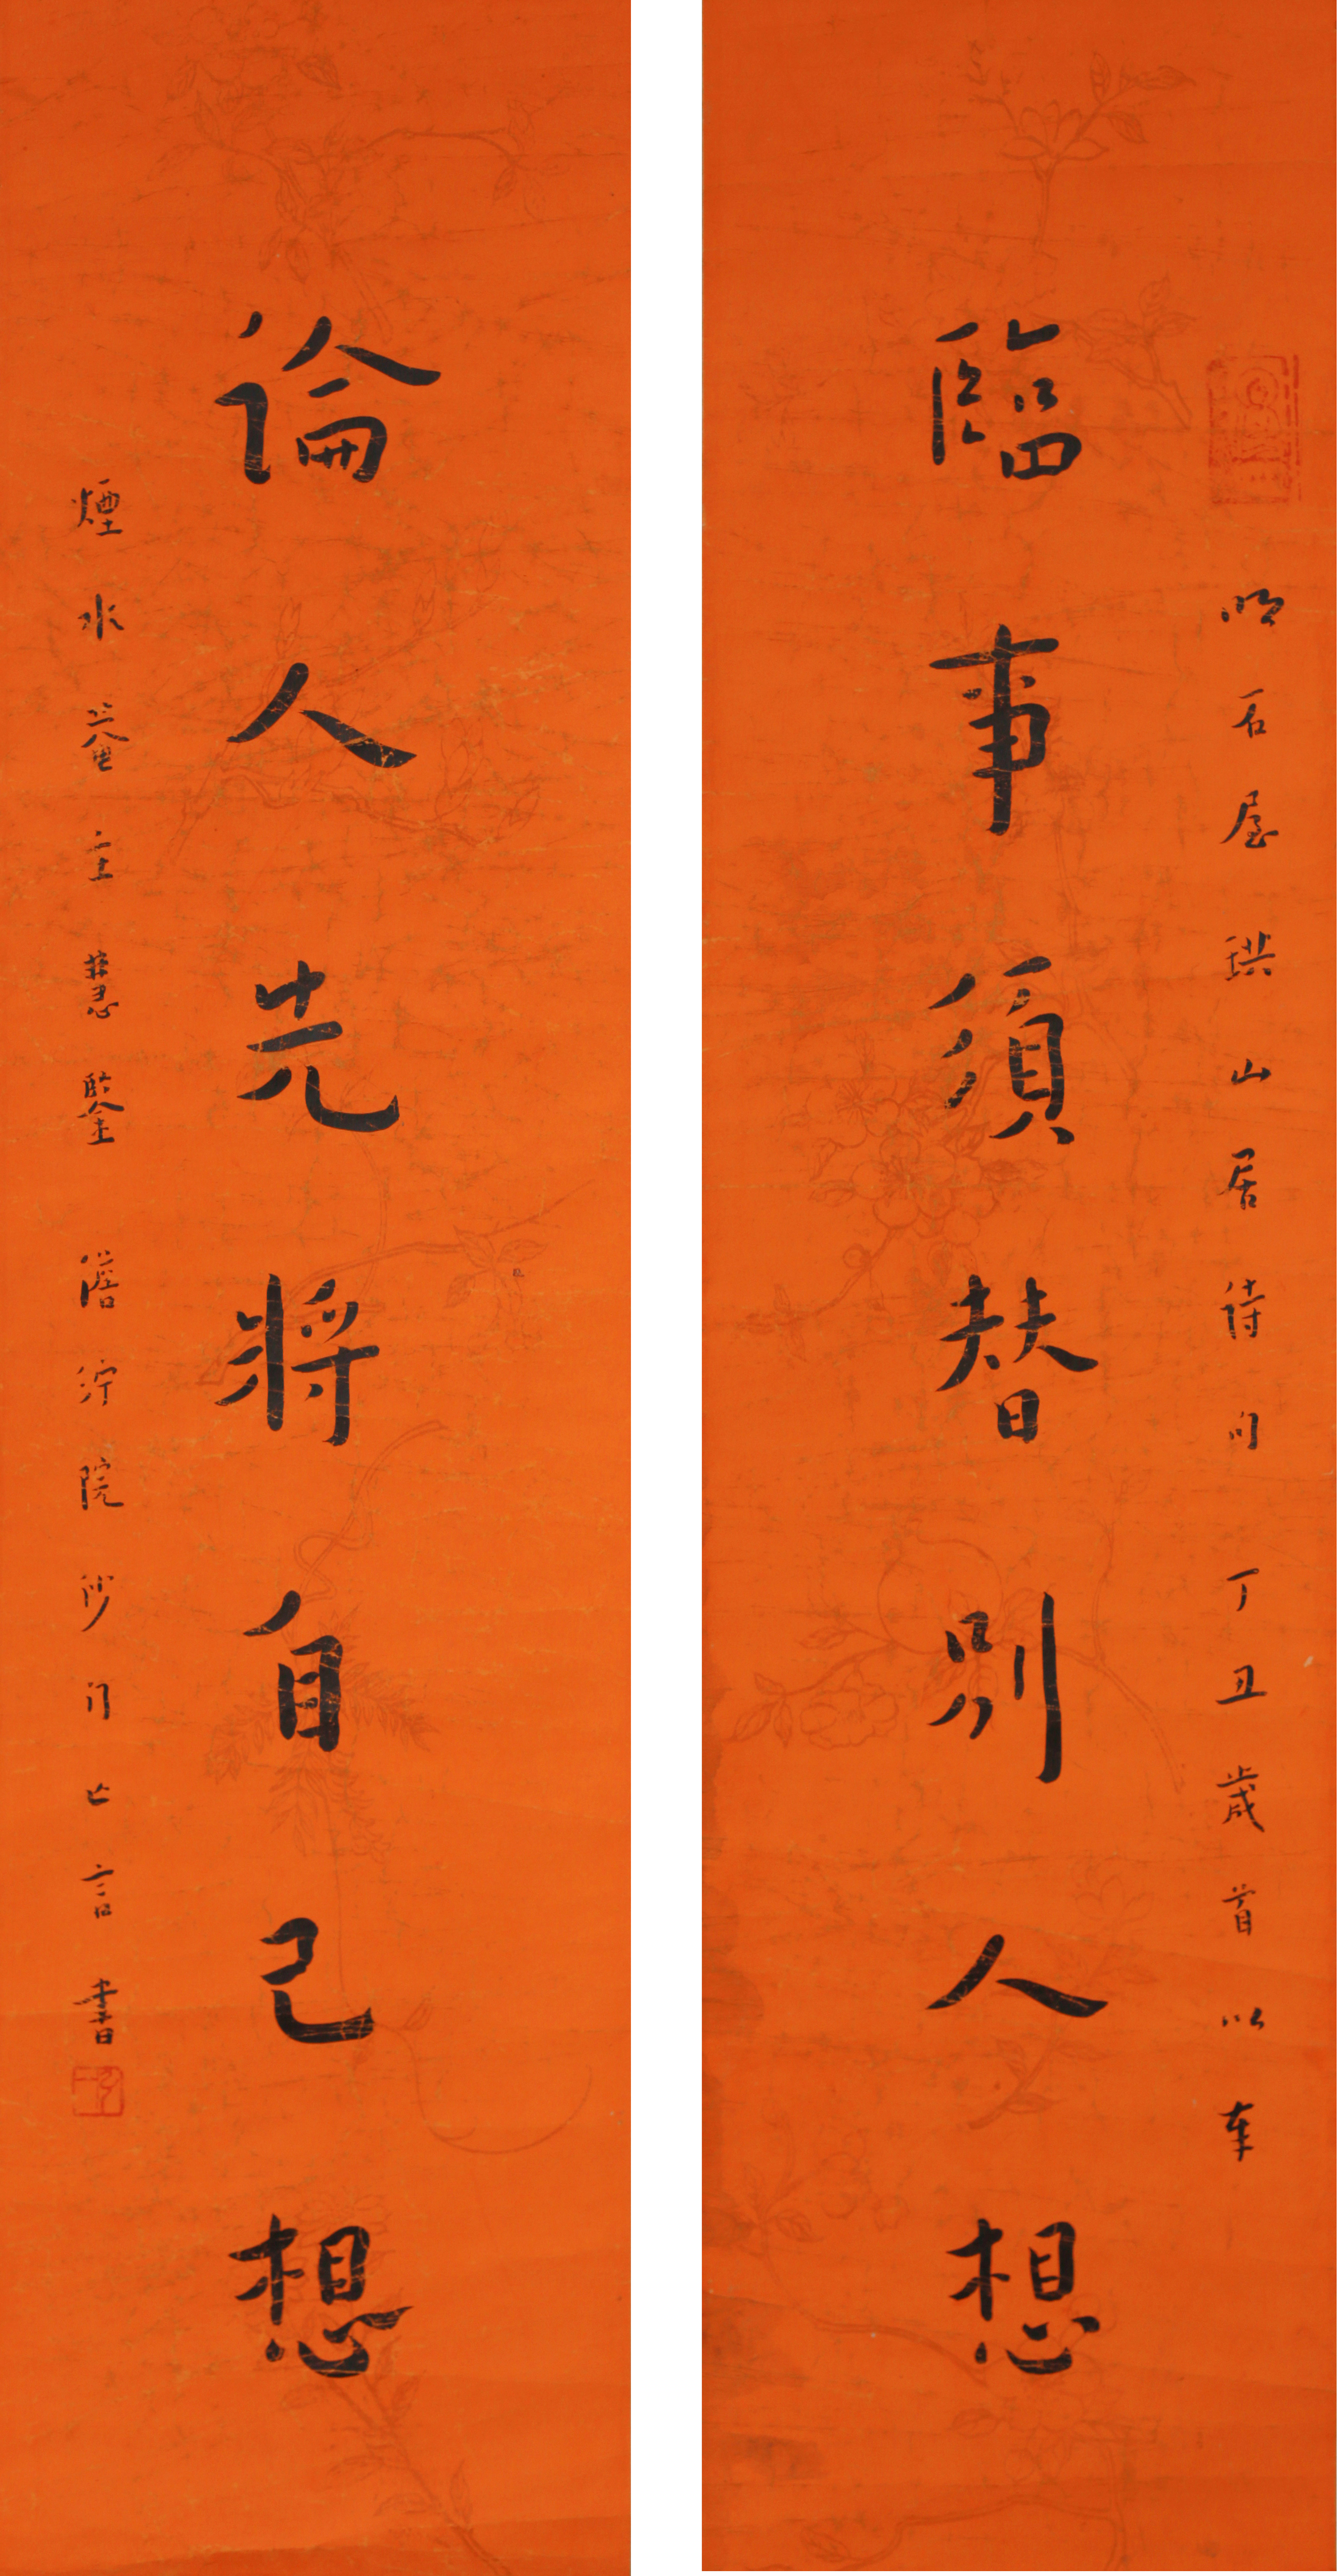 明石屋珙山居詩句 丁丑歲首以奉
臨事須替別人想
論人先將自己想
煙水菴主慧鑒 澹泞院沙門亡言書